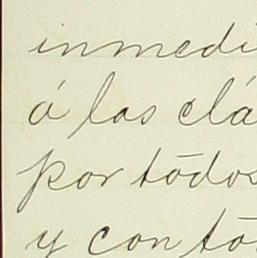 inmedi
á las clá
por tōdos
y con tō